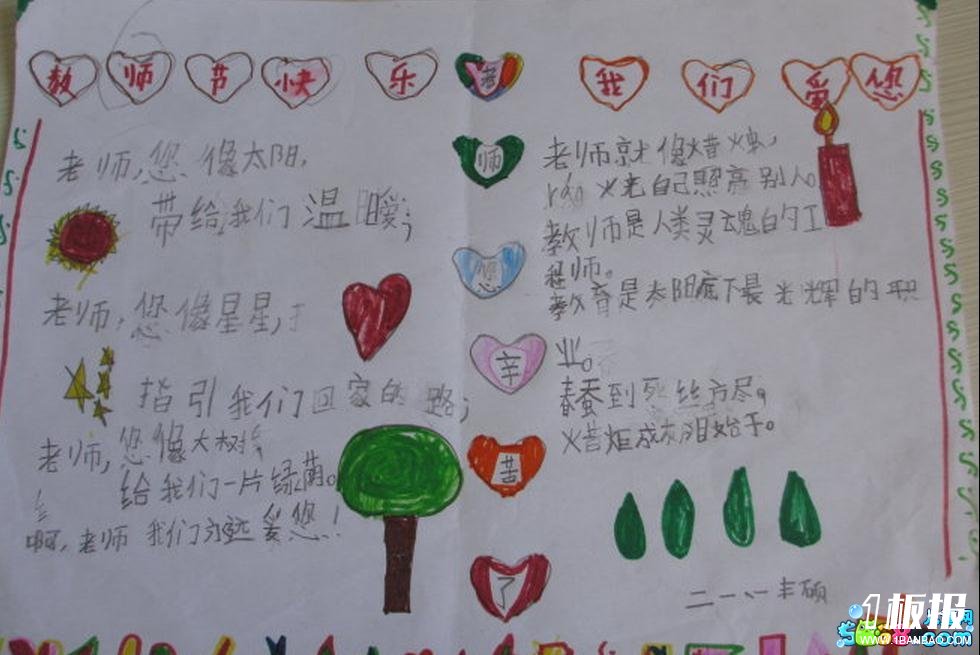 教师节快乐
我们爱您
老师您辛苦了
老师,您像太阳,
带给我们温暖;
老师,您像星星,
指引我们回家的路;
老师,您像大树
给我们一片绿荫。
啊,老师 我们永远爱您!
老师就像蜡烛,
火光自己照亮别人。
教师是人类灵魂的工
程师。
教育是太阳底下最光辉的职
业。
春蚕到死丝方尽,
成灰泪始干。
二一、一丰硕
1板报
WWW.1BANBAO.COM